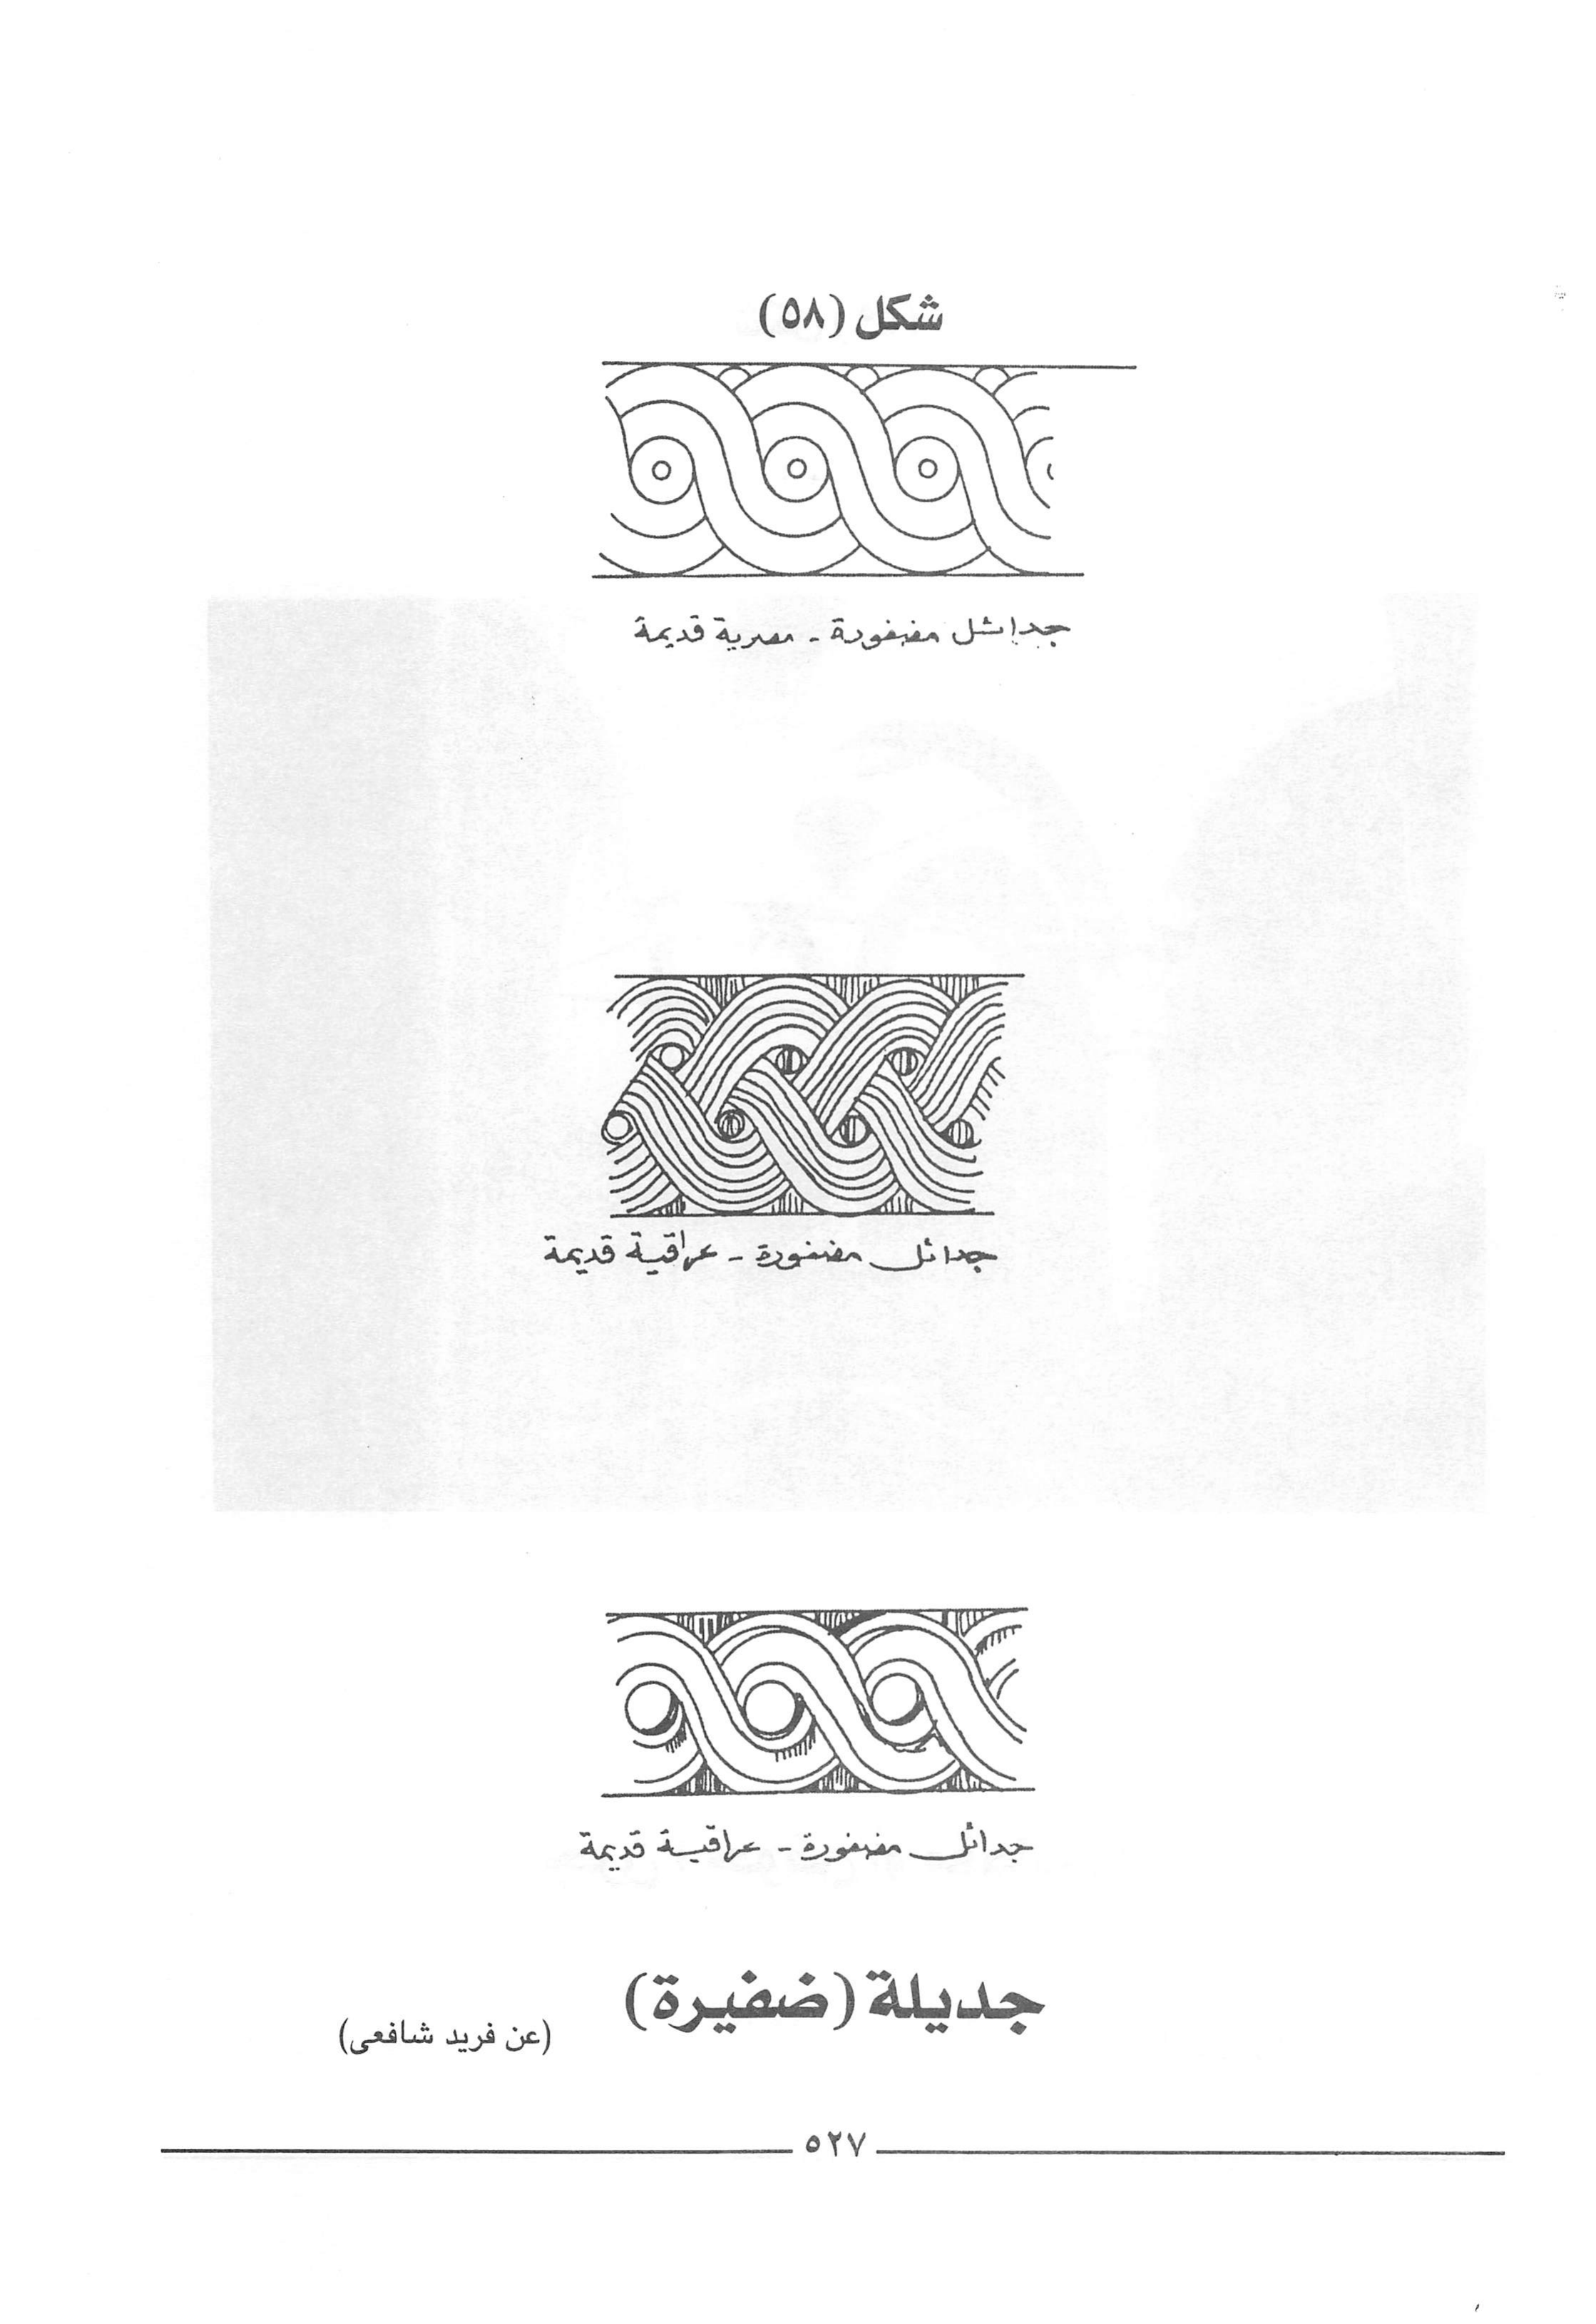 شكل (٥٨)
جدائل مضفورة - مصرية قديمة
جدائل مضفورة - عراقية قديمة
جدائل مضفورة - عراقية قديمة
جديلة (ضفيرة)
(عن فريد شافعى)
٥٢٧